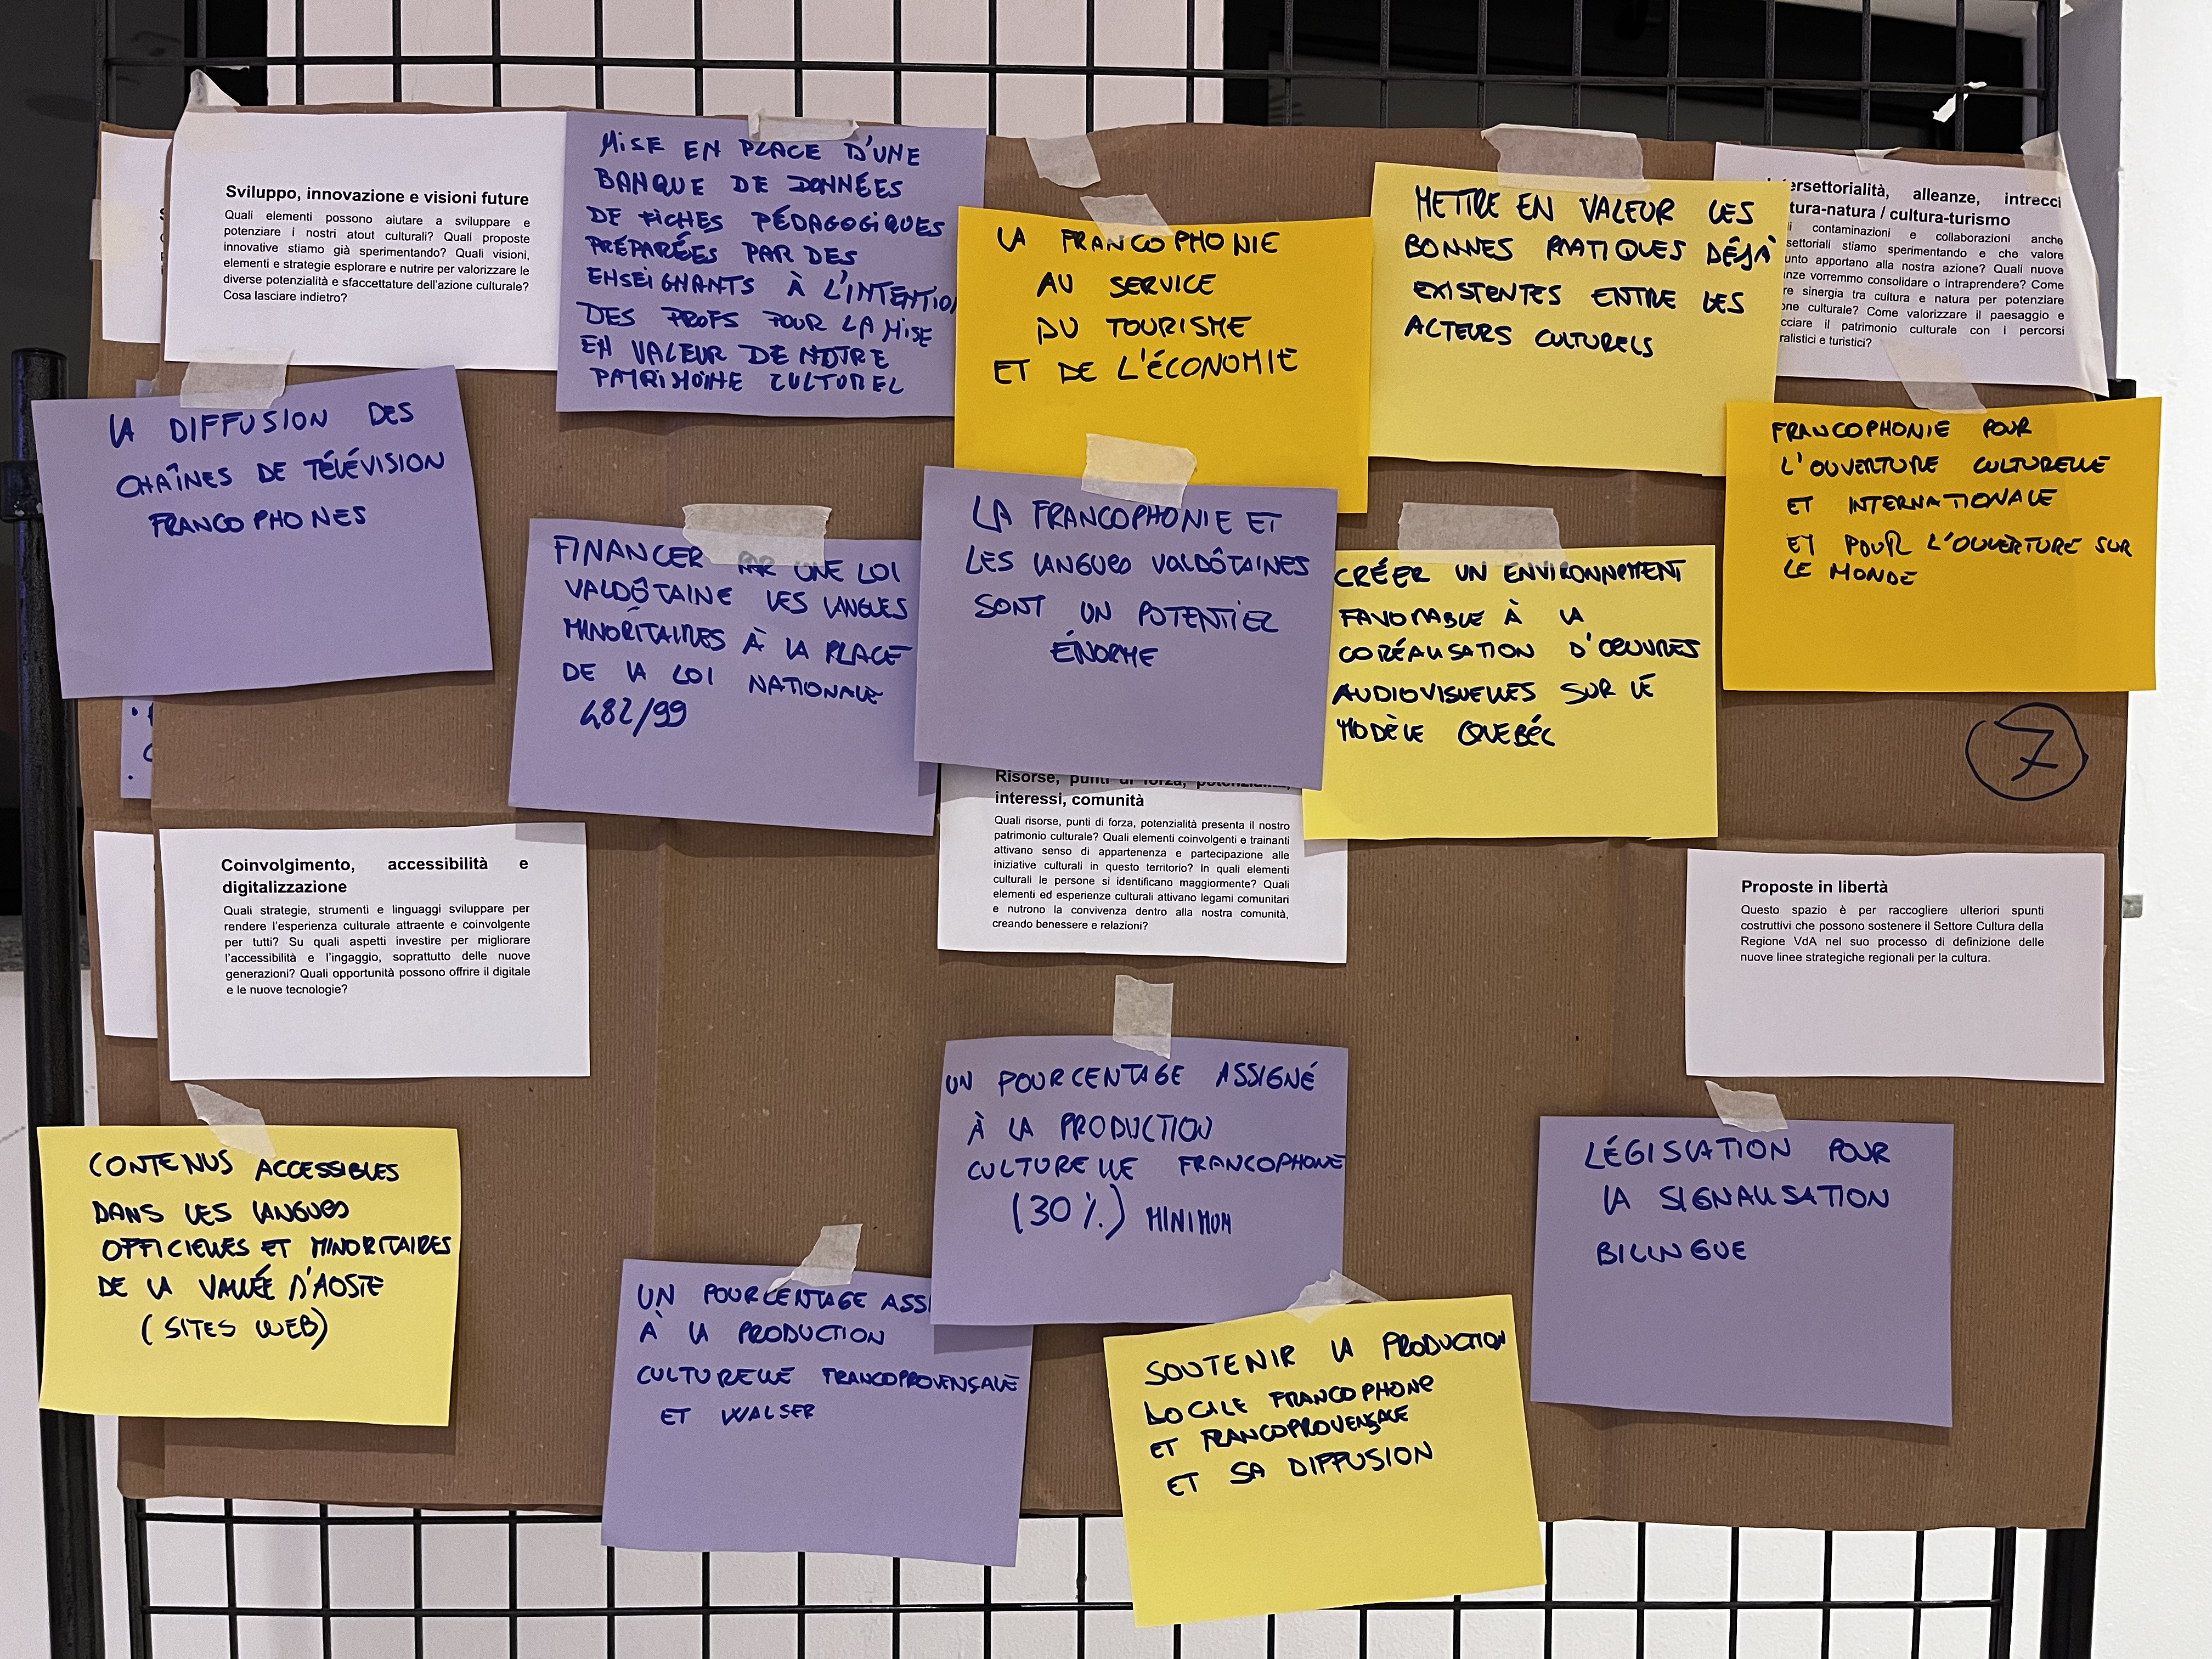 Sviluppo, innovazione e visioni future
Quali elementi possono aiutare a sviluppare e
potenziare i nostri atout culturali? Quali proposte
innovative stiamo già sperimentando? Quali visioni,
elementi e strategie esplorare e nutrire per valorizzare le
diverse potenzialità e sfaccettature dell'azione culturale?
Cosa lasciare indietro?
MISE EN PLACE D'UNE
BANQUE DE DONNÉES
DE FICHES PÉDAGOGIQUES
PRÉPARÉES PAR DES
ENSEIGNANTS À L'INTENTION
DES PROFS POUR LA MISE
EN VALEUR DE NOTRE
PATRIMOINE CULTUREL
LA FRANCOPHONIE
AU SERVICE
DU TOURISME
ET DE L'ÉCONOMIE
METTRE EN VALEUR LES
BONNES PRATIQUES DÉJÀ
EXISTENTES ENTRE LES
ACTEURS CULTURELS
ersettorialità, alleanze, intrecci
tura-natura / cultura-turismo
contaminazioni e collaborazioni anche
settoriali stiamo sperimentando e che valore
unto apportano alla nostra azione? Quali nuove
nze vorremmo consolidare o intraprendere? Come
re sinergia tra cultura e natura per potenziare
one culturale? Come valorizzare il paesaggio e
cciare il patrimonio culturale con i percorsi
ralistici e turistici?
LA DIFFUSION DES
CHAÎNES DE TÉLÉVISION
FRANCOPHONES
FINANCER PAR UNE LOI
VALDÔTAINE LES LANGUES
MINORITAIRES À LA PLACE
DE LA LOI NATIONALE
482/99
LA FRANCOPHONIE ET
LES LANGUES VALDÔTAINES
SONT UN POTENTIEL
ÉNORME
CRÉER UN ENVIRONNEMENT
FAVORABLE À LA
CORÉALISATION D'ŒUVRES
AUDIOVISUELLES SUR LE
MODÈLE QUEBÉC
FRANCOPHONIE POUR
L'OUVERTURE CULTURELLE
ET INTERNATIONALE
ET POUR L'OUVERTURE SUR
LE MONDE
7
Risorse, punti di forza, potenzialità,
interessi, comunità
Quali risorse, punti di forza, potenzialità presenta il nostro
patrimonio culturale? Quali elementi coinvolgenti e trainanti
attivano senso di appartenenza e partecipazione alle
iniziative culturali in questo territorio? In quali elementi
culturali le persone si identificano maggiormente? Quali
elementi ed esperienze culturali attivano legami comunitari
e nutrono la convivenza dentro alla nostra comunità,
creando benessere e relazioni?
Coinvolgimento, accessibilità e
digitalizzazione
Quali strategie, strumenti e linguaggi sviluppare per
rendere l'esperienza culturale attraente e coinvolgente
per tutti? Su quali aspetti investire per migliorare
l'accessibilità e l'ingaggio, soprattutto delle nuove
generazioni? Quali opportunità possono offrire il digitale
e le nuove tecnologie?
Proposte in libertà
Questo spazio è per raccogliere ulteriori spunti
costruttivi che possono sostenere il Settore Cultura della
Regione VdA nel suo processo di definizione delle
nuove linee strategiche regionali per la cultura.
CONTENUS ACCESSIBLES
DANS LES LANGUES
OFFICIELLES ET MINORITAIRES
DE LA VALLÉE D'AOSTE
(SITES WEB)
UN POURCENTAGE ASSIGNÉ
À LA PRODUCTION
CULTURELLE FRANCOPHONE
(30 %) MINIMUM
UN POURCENTAGE ASSI
À LA PRODUCTION
CULTURELLE FRANCOPROVENÇALE
ET WALSER
SOUTENIR LA PRODUCTION
LOCALE FRANCOPHONE
ET FRANCOPROVENÇALE
ET SA DIFFUSION
LÉGISLATION POUR
LA SIGNALISATION
BILINGUE